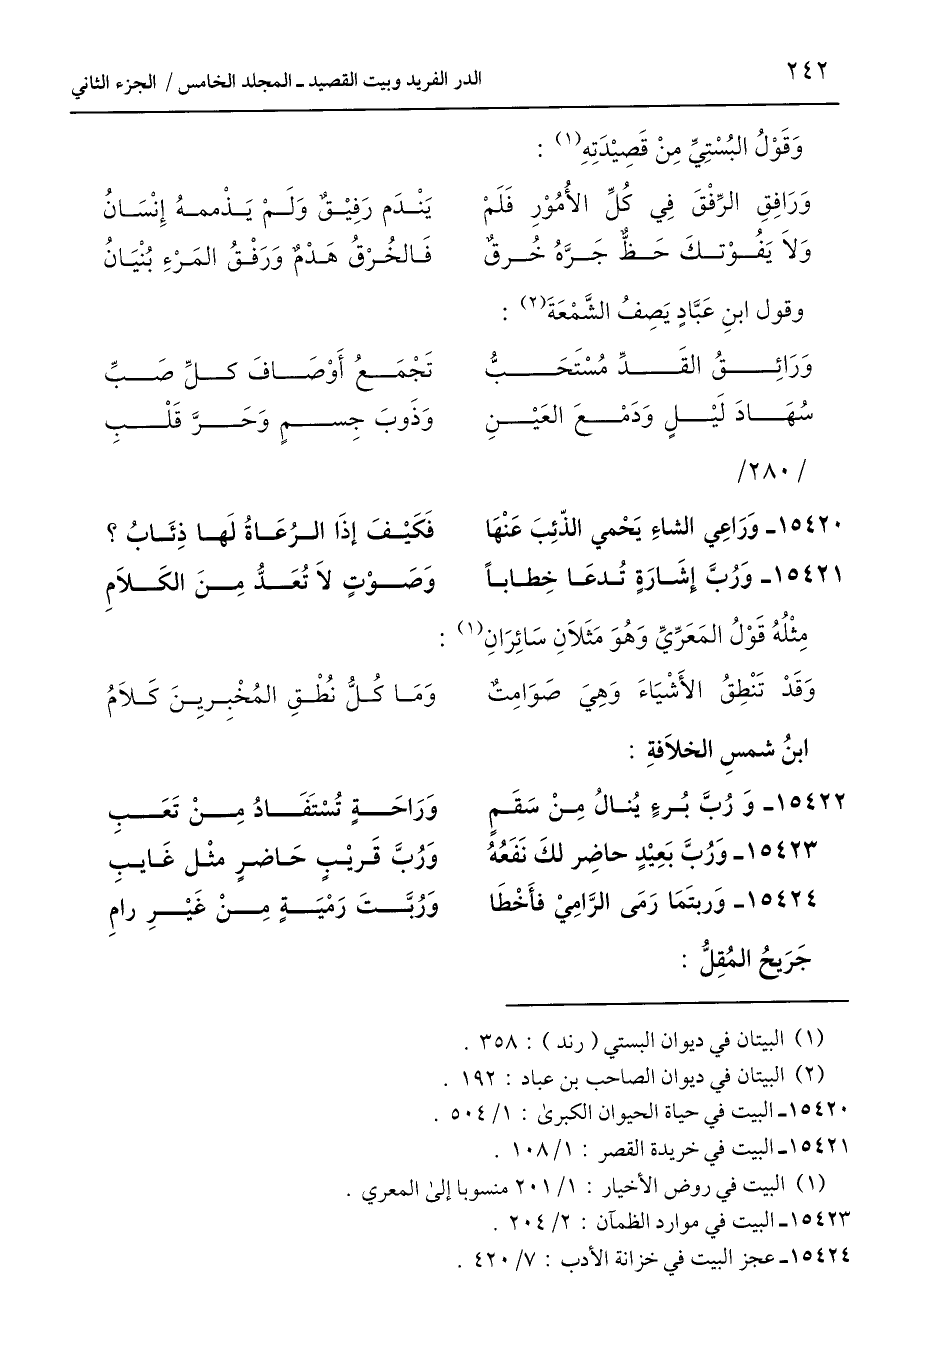 ٢٤٢ الدر الفريد وبيت القصيد ـ المجلد الخامس / الجزء الثاني
وَقَوْلُ البُسْتِيِّ مِنْ قَصِيْدَتِهِ(١) :
وَرَافِقِ الرِّفْقَ فِي كُلِّ الأُمُوْرِ فَلَمْ يَنْدَم رَفِيْقٌ وَلَمْ يَذْممهُ إِنْسَانُ
وَلاَ يَفُوْتكَ حَظٌّ جَرَّهُ خُرقٌ فَالخُرْقُ هَدْمٌ وَرَفْقُ المَرْءِ بُنْيَانُ
وقول ابنِ عَبَّادٍ يَصِفُ الشَّمْعَةَ(٢) :
وَرَائِقُ القَدِّ مُسْتَحَبُّ تَجْمَعُ أَوْصَافَ كلِّ صَبِّ
سُهَادَ لَيْلٍ وَدَمْعَ العَيْنِ وَذَوبَ جِسمٍ وَحَرَّ قَلْبِ
/٢٨٠/
١٥٤٢٠ـ وَرَاعِي الشاءِ يَحْمي الذّئِبَ عَنْهَا فَكَيْفَ إِذَا الرُعَاةُ لَها ذِئَابُ ؟
١٥٤٢١ـ وَرُبَّ إِشَارَةٍ تُدعَا خِطاباً وَصَوْتٍ لاَ تُعَدُّ مِنَ الكَلاَمِ
مِثْلُهُ قَوْلُ المَعَرِّيِّ وَهُوَ مَثَلاَنِ سَائِرَانِ(١) :
وَقَدْ تَنْطِقُ الأَشْيَاءَ وَهِيَ صَوَامِتٌ وَمَا كُلُّ نُطْقِ المُخْبِرِينَ كَلاَمُ
ابنُ شمسِ الخلاَفةِ :
١٥٤٢٢ـ وَ رُبَّ بُرءٍ يُنالُ مِنْ سَقَمٍ وَرَاحَةٍ تُسْتَفَادُ مِنْ تَعَبِ
١٥٤٢٣ـ وَرُبَّ بَعِيْدٍ حاضِر لكَ نَفَعُهُ وَرُبَّ قَرِيْبٍ حَاضرٍ مثْل غَايبِ
١٥٤٢٤ـ وَربتَمَا رَمَى الرَّامِيْ فأَخْطَا وَرُبَّتَ رَمْيَةٍ مِنْ غَيْرِ رامِ
جَرَيحُ المُقِلُّ :
(١) البيتان في ديوان البستي ( رند ) : ٣٥٨ .
(٢) البيتان في ديوان الصاحب بن عباد : ١٩٢ .
١٥٤٢٠ـ البيت في حياة الحيوان الكبرىٰ : ١/ ٥٠٤ .
١٥٤٢١ـ البيت في خريدة القصر : ١/ ١٠٨ .
(١) البيت في روض الأخيار : ١/ ٢٠١ منسوبا إلىٰ المعري .
١٥٤٢٣ـ البيت في موارد الظمآن : ٢/ ٢٠٤ .
١٥٤٢٤ـ عجز البيت في خزانة الأدب : ٧/ ٤٢٠ .